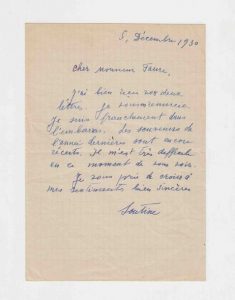 5, Décembre 1930
Cher Monsieur Faure,
J'ai bien reçu vos deux
lettres. Je vous remercie
Je suis franchement dans
l'embarras. Les souvenirs de
l'année dernières sont encore
récents. Il m'est très difficile
en ce moment de vous voir.
Je vous prie de croire à
mes sentiments bien sincères
Soutine